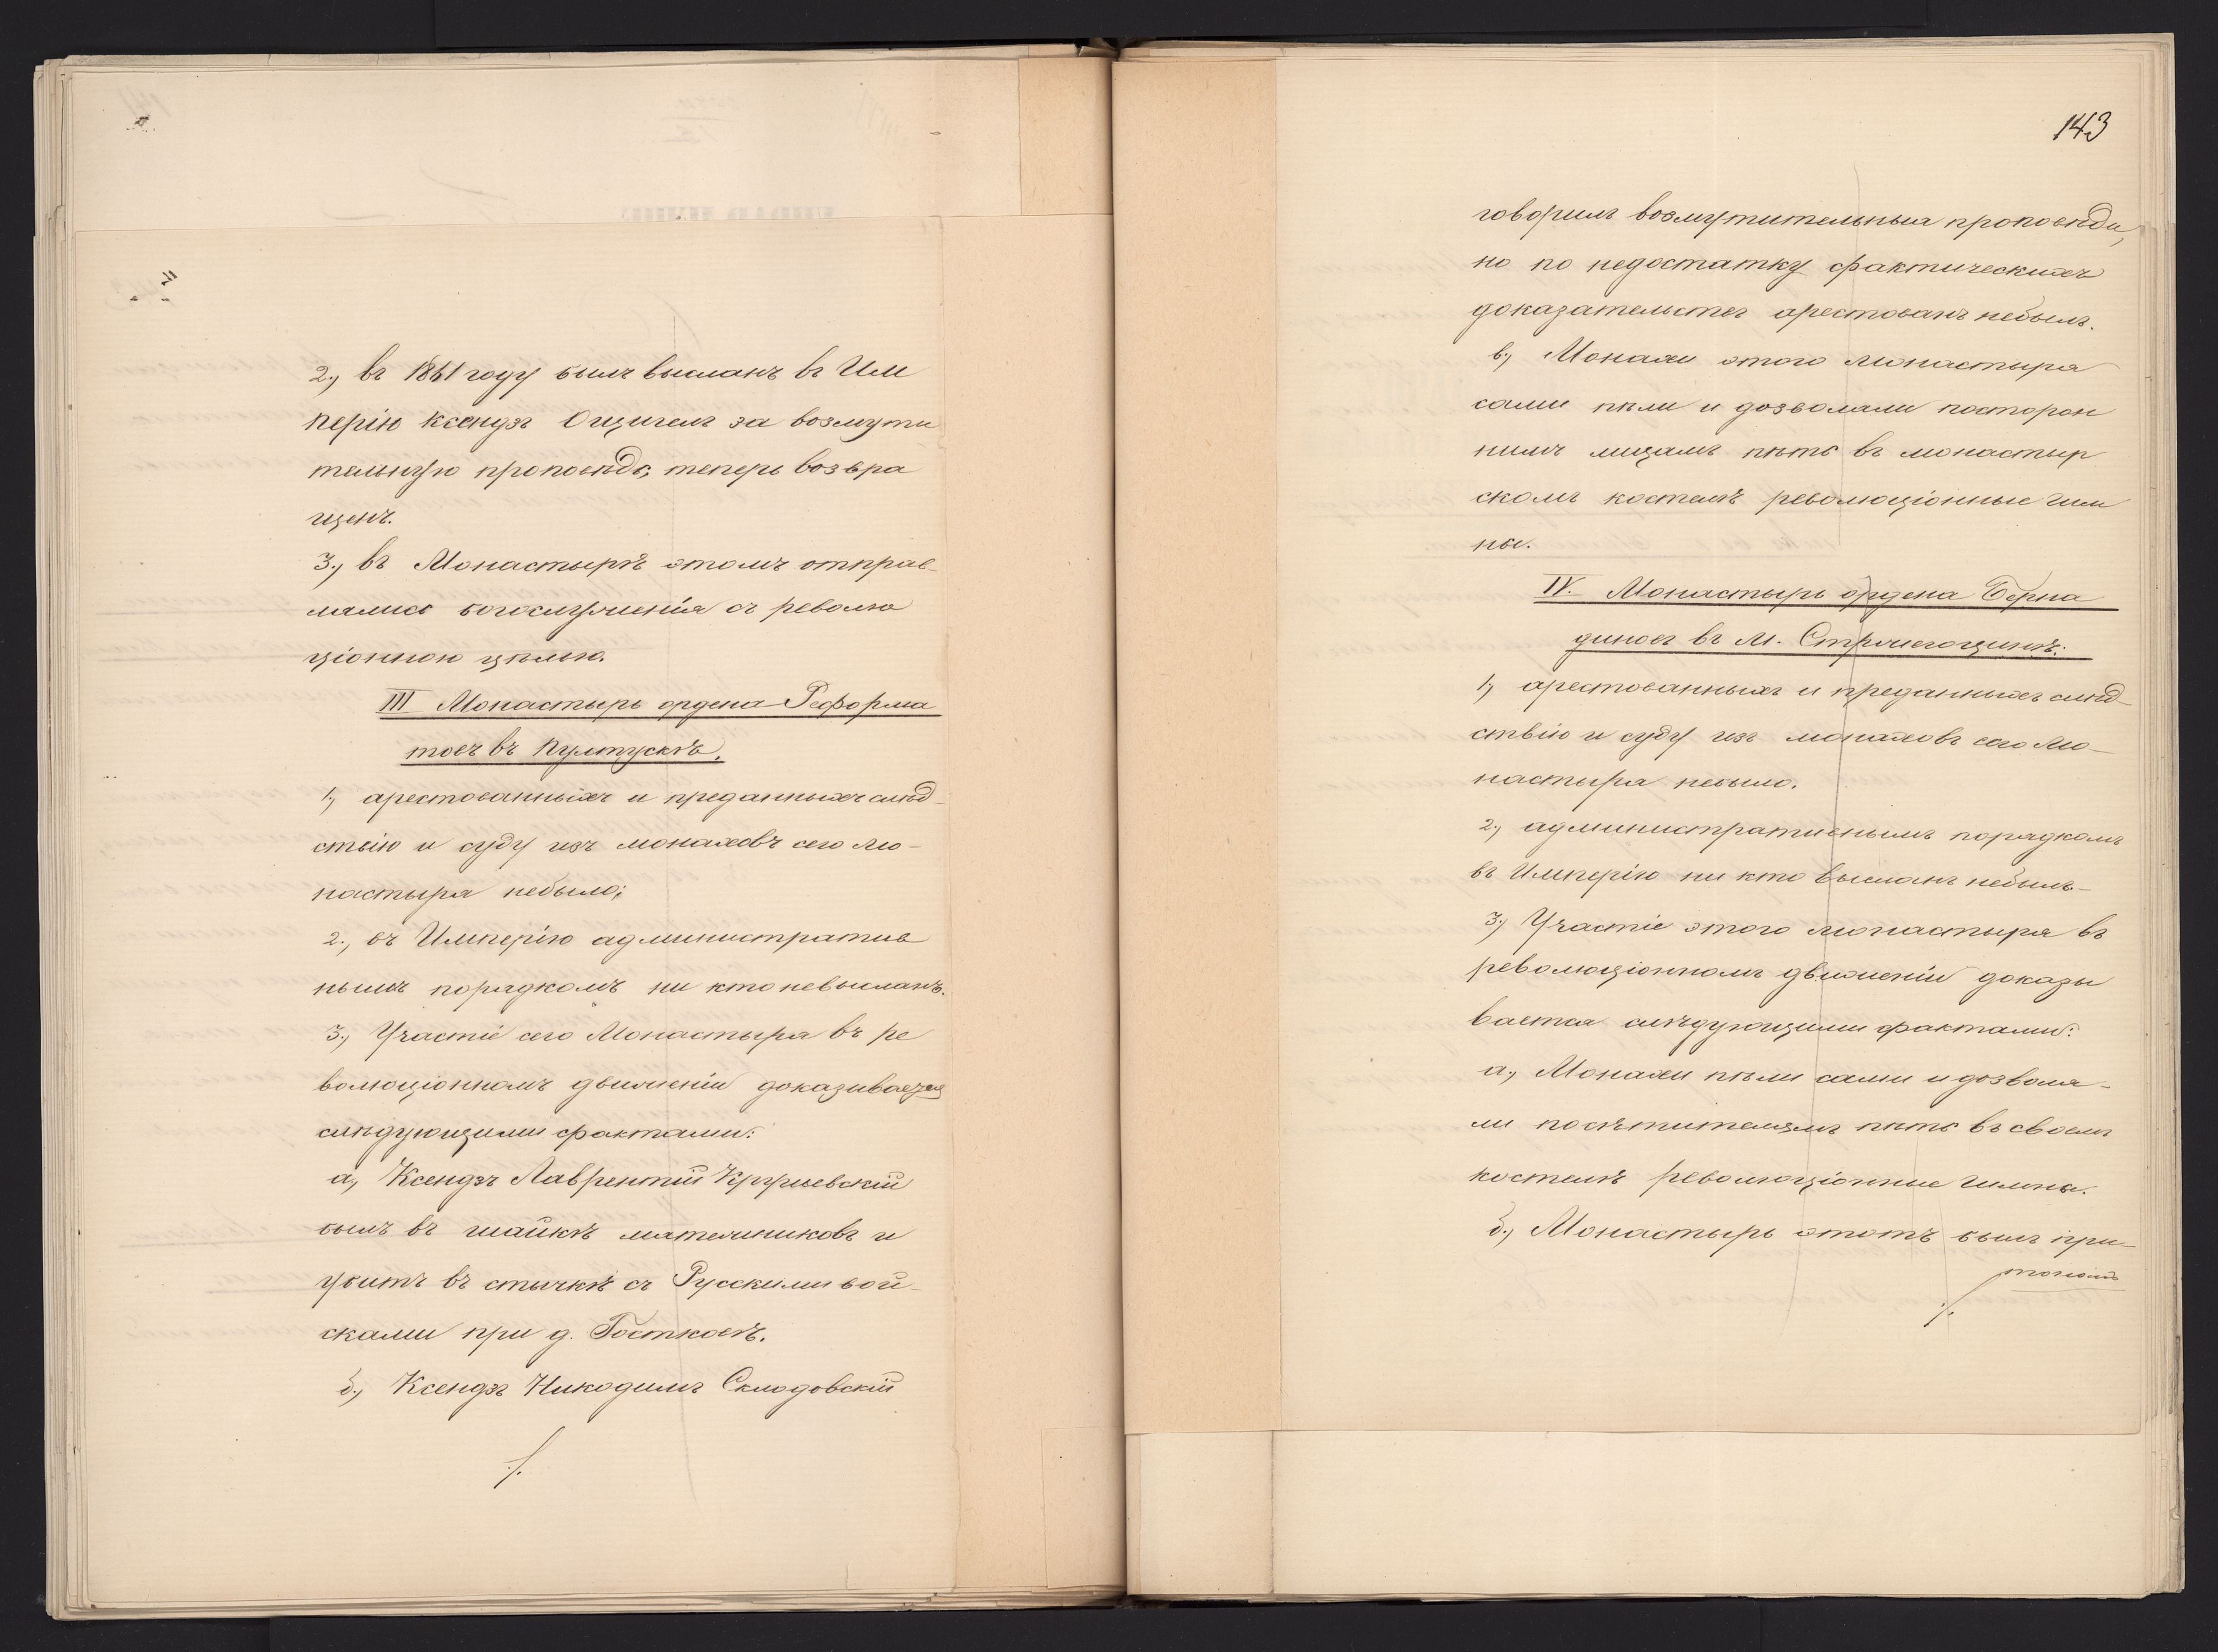 2., въ 1861 году былъ высланъ въ Им
перію ксендзъ за возмути
тельную проповѣдь, теперь возвра
щенъ.
3., въ Монастырѣ этомъ отправ-
лялись богослуженія съ револю
ціонною цѣлью.
III Монастырь ордена Реформа
товъ въ Пултускѣ.
1., арестованныхъ и преданныхъ слѣд-
ствію и суду изъ монаховъ сего мо-
настыря небыло;
2., въ Имперію административ
нымъ порядкомъ ни кто невысланъ.
3., Участіе сего Монастыря въ ре
волюціонномъ движеніи доказывается
слѣдующими фактами:
а, Ксендзъ Лаврентій
былъ въ шайкѣ мятежниковъ и
убитъ въ стычкѣ съ Русскими вой-
сками при д. Гостковѣ.
б., Ксендзъ Никодимъ Склодовскій
./.
143
говорилъ возмутительныя проповѣди,
но по недостатку фактическихъ
доказательствъ арестованъ небылъ.
в., Монахи этого монастыря
сами пѣли и дозволяли посторон
нимъ лицамъ пѣть въ монастыр
скомъ костелѣ революціонные гим
ны.
IV. Монастырь ордена Берна
диновъ въ м. Стржегоцинѣ:
1, арестованныхъ и преданныхъ слѣд-
ствію и суду изъ монаховъ сего мо-
настыря небыло.
2., административнымъ порядкомъ
въ Имперію ни кто высланъ небылъ-
3., Участіе этого монастыря въ
революціонномъ движеніи доказы
вается слѣдующими фактами:
а., Монахи пѣли сами и дозволя-
ли посѣтителямъ пѣть въ своемъ
костелѣ революціонные гимны.
б., Монастырь этотъ былъ при-
тономъ
./.